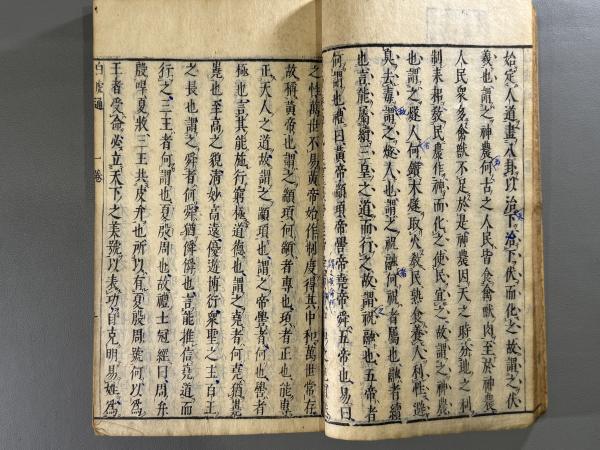 始定人道畫八卦以治下治下伏而化之故謂之伏
羲也謂之神農何古之人民皆食禽獸肉至於神農
人民衆多禽獸不足於是神農因天之時分地之利
制耒耜教民農作神而化之使民宜之故謂之神農
也謂之燧人何鑽木燧取火教民熟食養人利性避
臭去毒謂之燧人也謂之祝融何祝者屬也融者續
也言能屬續三皇之道而行之故謂祝融也五帝者
何謂也禮曰黃帝顓頊帝嚳帝堯帝舜五帝也易曰
之性萬世不易黃帝始作制度得其中和萬世常存
故稱黃帝也謂之顓頊何顓者專也頊者正也能專
正天人之道故謂之顓頊也謂之帝嚳者何也嚳者
極也言其能施行窮極道德也謂之堯者何堯猶嶢
嶢也至高之貌清妙高遠優遊博衍衆聖之主百王
之長也謂之舜者何舜猶僢僢也言能推信堯道而
行之三王者何謂也夏殷周也故禮士冠經曰周弁
殷冔夏收三王共皮弁也所以有夏殷周號何以爲
王者受命必立天下之美號以表功自克明易姓爲
白虎通 一卷